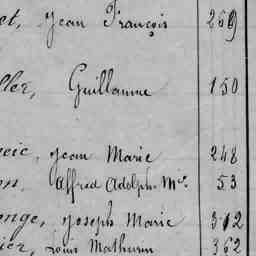 et, Jean François 269
ller, Guillaume 150
Jean Marie 248
Alfred Adolph. Mie. 53
enge, Joseph Marie 312
ier, Louis Mathurin 362